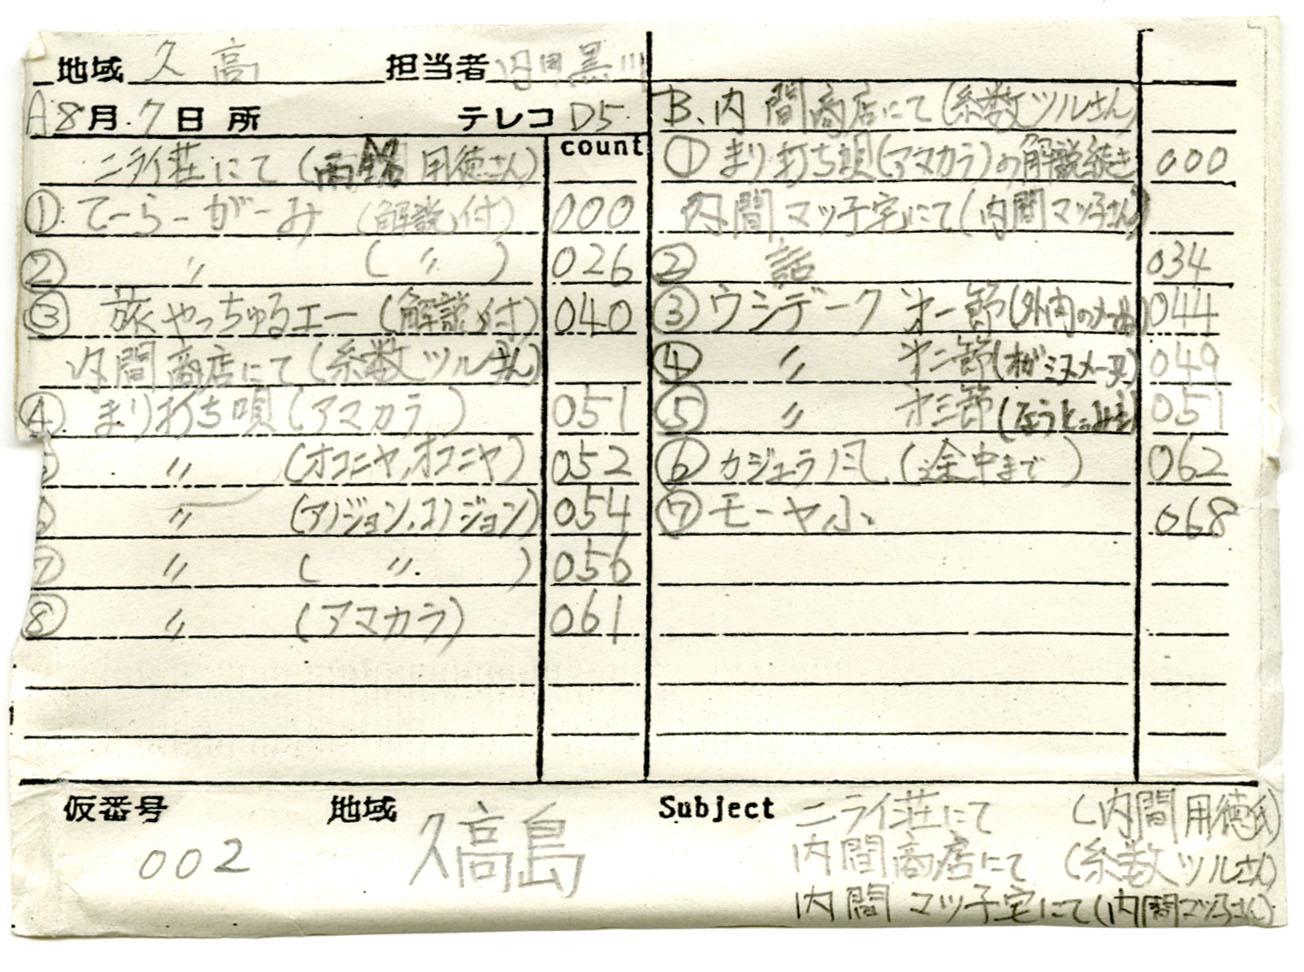 地域 久高 担当者 内間 黒川
A 8月 7日 所 テレコ D5
count
ニライ荘にて (内間 用徳さん)
① てーらーがーみ (解説付) 000
② 〃 (〃) 026
③ 旅やっちゅるエー (解説付) 040
内間商店にて (糸数ツルさん)
④ まり打ち唄 (アマカラ) 051
〃 (オコニヤ,オコニヤ) 052
〃 (アンジョン,コンジョン) 054
⑦ 〃 (〃) 056
⑧ 〃 (アマカラ) 061
B. 内間商店にて (糸数ツルさん)
① まり打ち唄 (アマカラ) の解説続き 000
内間マツ子宅にて (内間マツ子さん)
② 話 034
③ ウシデーク 第一節 044
④ 〃 第二節 049
⑤ 〃 第三節 051
⑥ カジェラ風 (途中まで) 062
⑦ モーヤ小 068
仮番号 地域 Subject
002 久高島
ニライ荘にて (内間用徳氏)
内間商店にて (糸数ツルさん)
内間マツ子宅にて (内間マツ子さん)